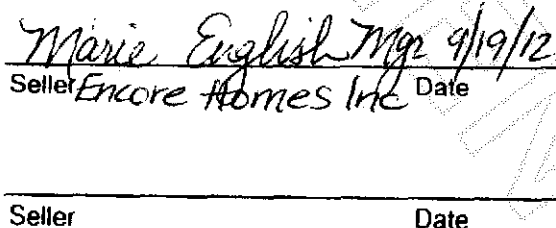 Marie English Mgr 9/19/12
Seller Encore Homes Inc Date
Seller Date